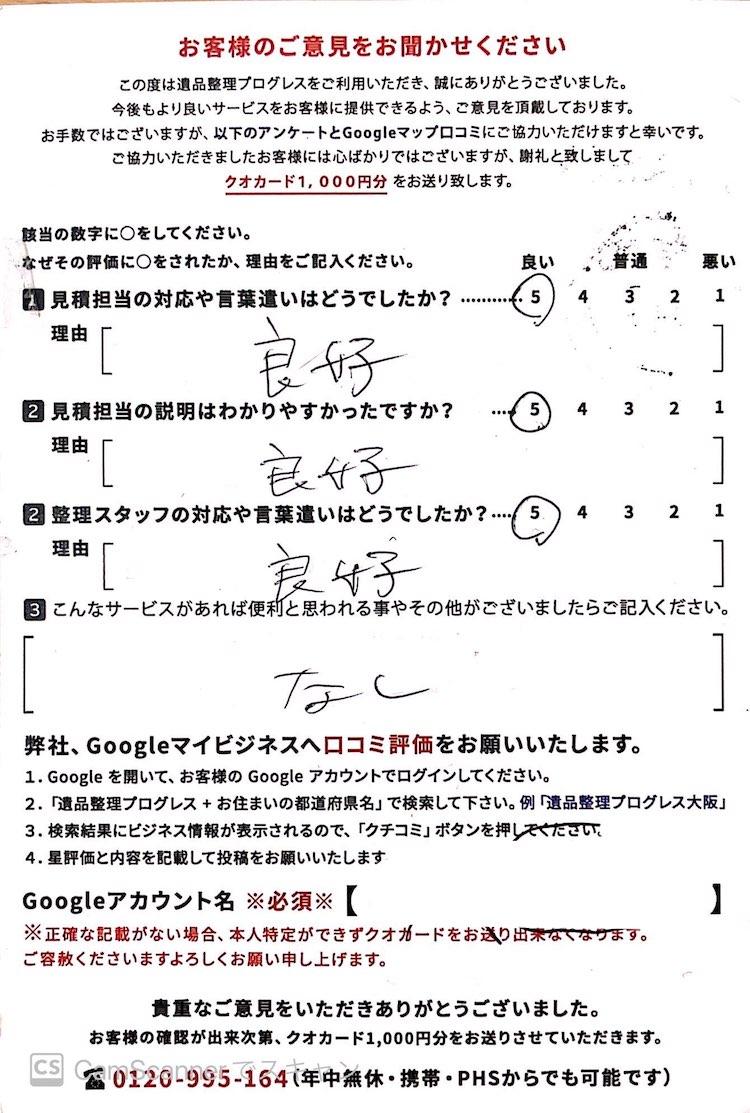 お客様のご意見をお聞かせください
この度は遺品整理プログレスをご利用いただき、誠にありがとうございました。
今後もより良いサービスをお客様に提供できるよう、ご意見を頂戴しております。
お手数ではございますが、以下のアンケートとGoogleマップ口コミにご協力いただけますと幸いです。
ご協力いただきましたお客様には心ばかりではございますが、謝礼と致しまして
クオカード1,000円分 をお送り致します。
該当の数字に〇をしてください。
なぜその評価に〇をされたか、理由をご記入ください。 良い 普通 悪い
1 見積担当の対応や言葉遣いはどうでしたか？ ………… 5 4 3 2 1
理由 [ 良好 ]
2 見積担当の説明はわかりやすかったですか？ …… 5 4 3 2 1
理由 [ 良好 ]
2 整理スタッフの対応や言葉遣いはどうでしたか？…… 5 4 3 2 1
理由 [ 良好 ]
3 こんなサービスがあれば便利と思われる事やその他がございましたらご記入ください。
[ なし ]
弊社、Googleマイビジネスへ口コミ評価をお願いいたします。
1. Google を開いて、お客様の Google アカウントでログインしてください。
2.「遺品整理プログレス + お住まいの都道府県名」で検索して下さい。例「遺品整理プログレス大阪」
3. 検索結果にビジネス情報が表示されるので、「クチコミ」ボタンを押してください。
4. 星評価と内容を記載して投稿をお願いいたします
Googleアカウント名 ※必須※【 】
※正確な記載がない場合、本人特定ができずクオカードをお送り出来なくなります。
ご容赦くださいますよろしくお願い申し上げます。
貴重なご意見をいただきありがとうございました。
お客様の確認が出来次第、クオカード1,000円分をお送りさせていただきます。
CS CamScanner でスキャン
☎0120-995-164（年中無休・携帯・PHSからでも可能です）